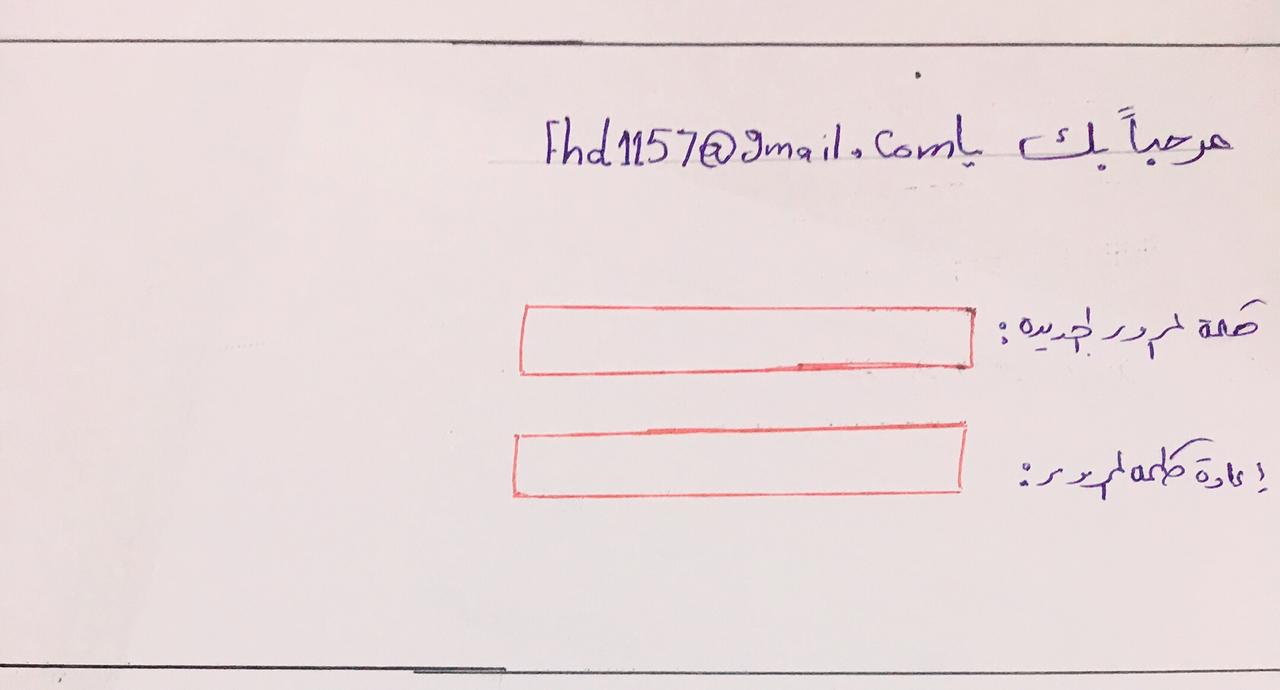 مرحباً بك يا Fhd1157@gmail.com
كلمة لمرور لجديده :
إعادة كلمه لمرور :